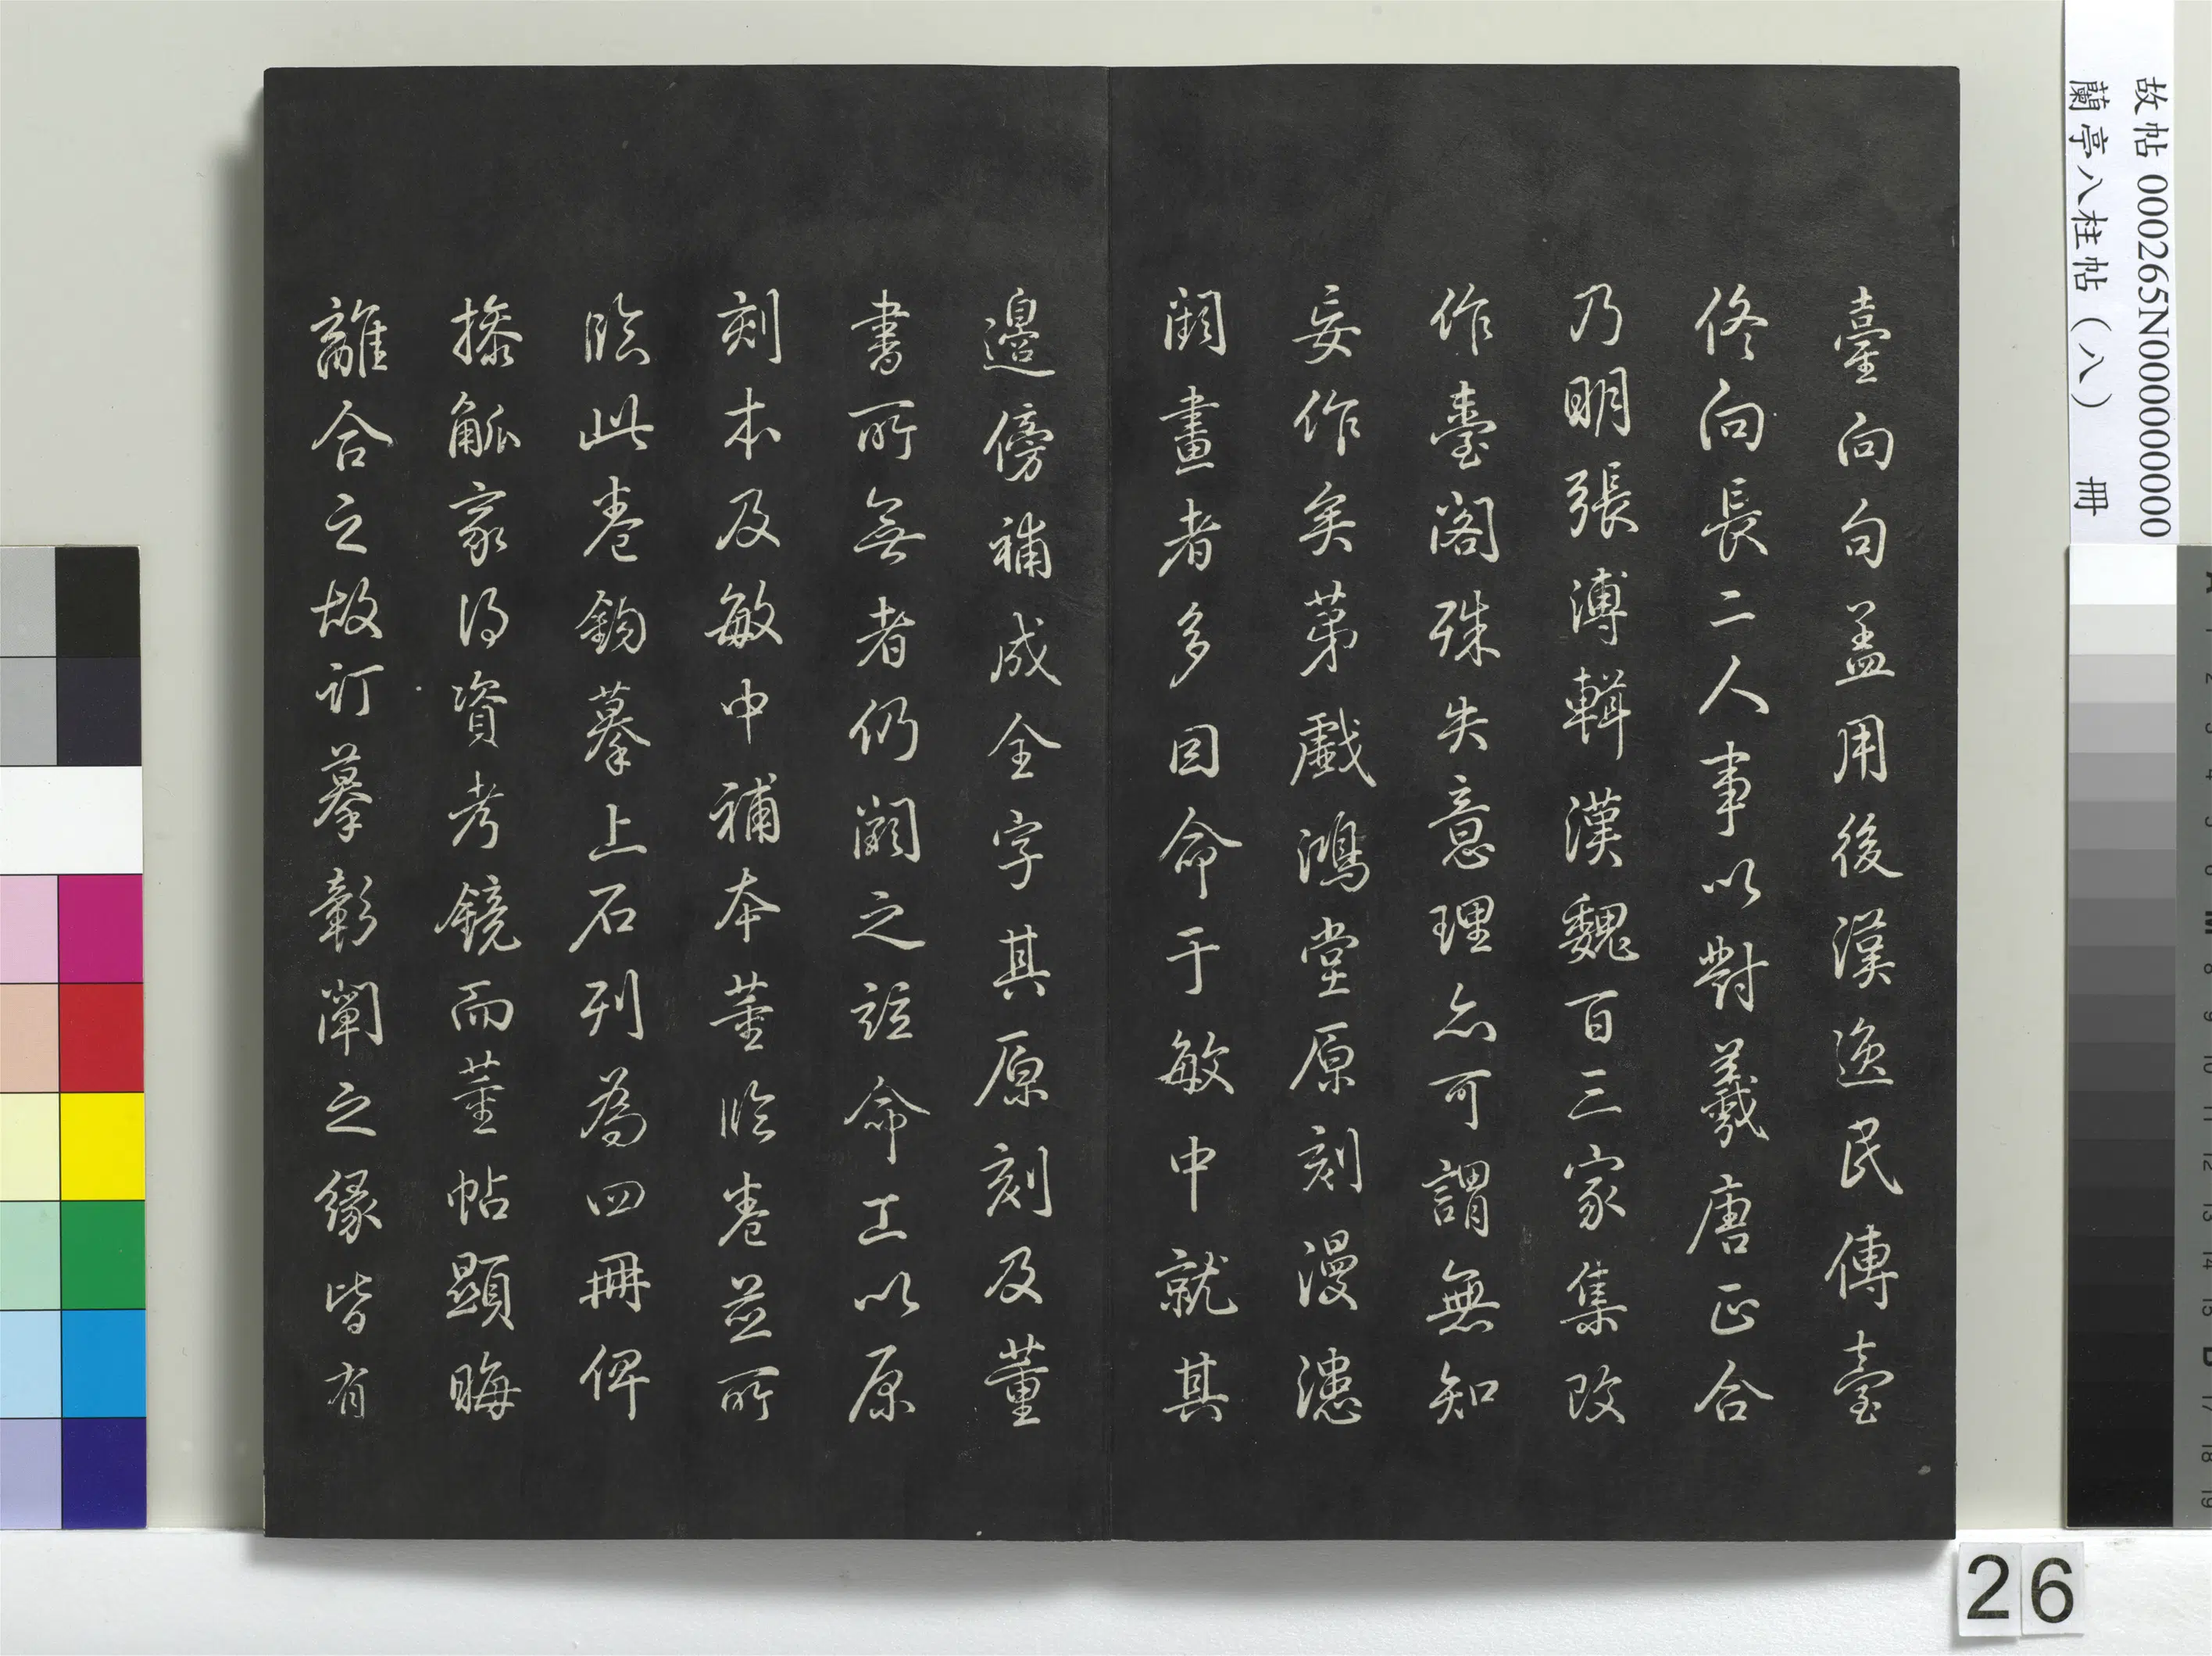 臺向句盖用後漢逸民傳臺
佟向長二人事以對羲唐正合
乃明張溥輯漢魏百三家集改
作臺閣殊失意理亦可謂無知
妄作矣第戲鴻堂原刻漫漶
闕畫者多因命于敏中就其
邊傍補成全字其原刻及董
書所無者仍闕之茲命工以原
刻本及敏中補本董臨卷並所
臨此卷鉤摹上石列為四冊俾
操觚家得資考鏡而董帖顯晦
離合之故訂摹彰闡之緣皆有
故帖 000265N000000000
蘭亭八柱帖（八） 冊
26